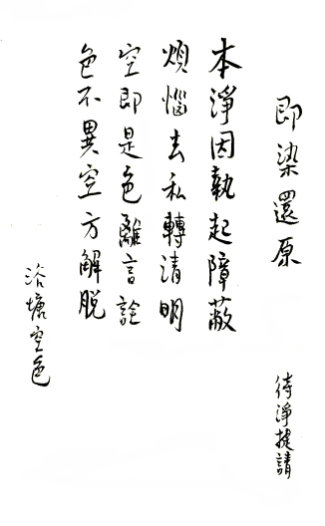 即染還原
待淨提請
本淨因執起障蔽
煩惱去私轉清明
空即是色離言詮
色不異空方解脫
浴塘空色